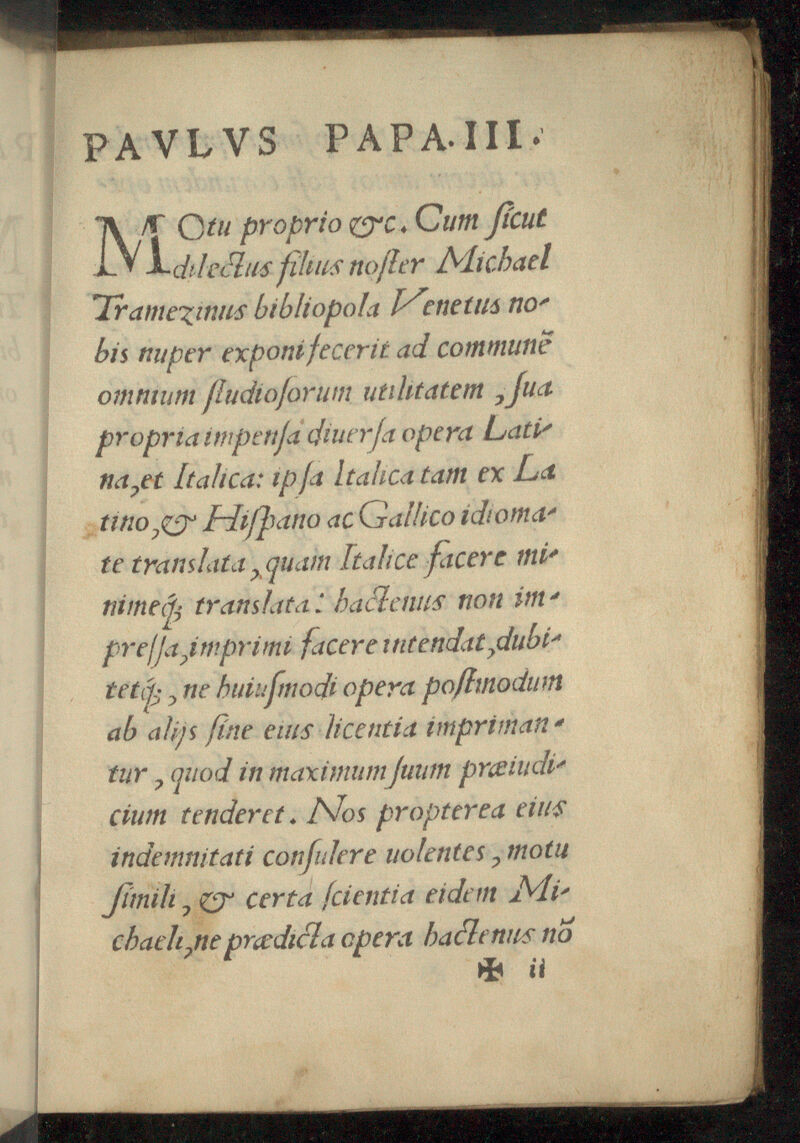 PAVLVS PAPA. III.
MOtu proprio &c. Cum ſicut
dilectus filius noſter Michael
Tramezinus bibliopola Venetus no-
bis nuper exponi fecerit ad communẽ
omnium ſtudioſorum utilitatem, ſua
propria impenſa diuerſa opera Lati-
na, et Italica: ipſa Italica tam ex La
tino, & Hiſpano ac Gallico idioma-
te translata, quam Italice facere mi-
nimeq; translata: hactenus non im-
preſſa, imprimi facere intendat, dubi-
tetq;, ne huiuſmodi opera poſtmodum
ab alijs ſine eius licentia impriman-
tur, quod in maximum ſuum præiudi-
cium tenderet. Nos propterea eius
indemnitati conſulere uolentes, motu
ſimili, & certa ſcientia eidem Mi-
chaeli, ne prædicta opera hactenus nõ
✠ ii